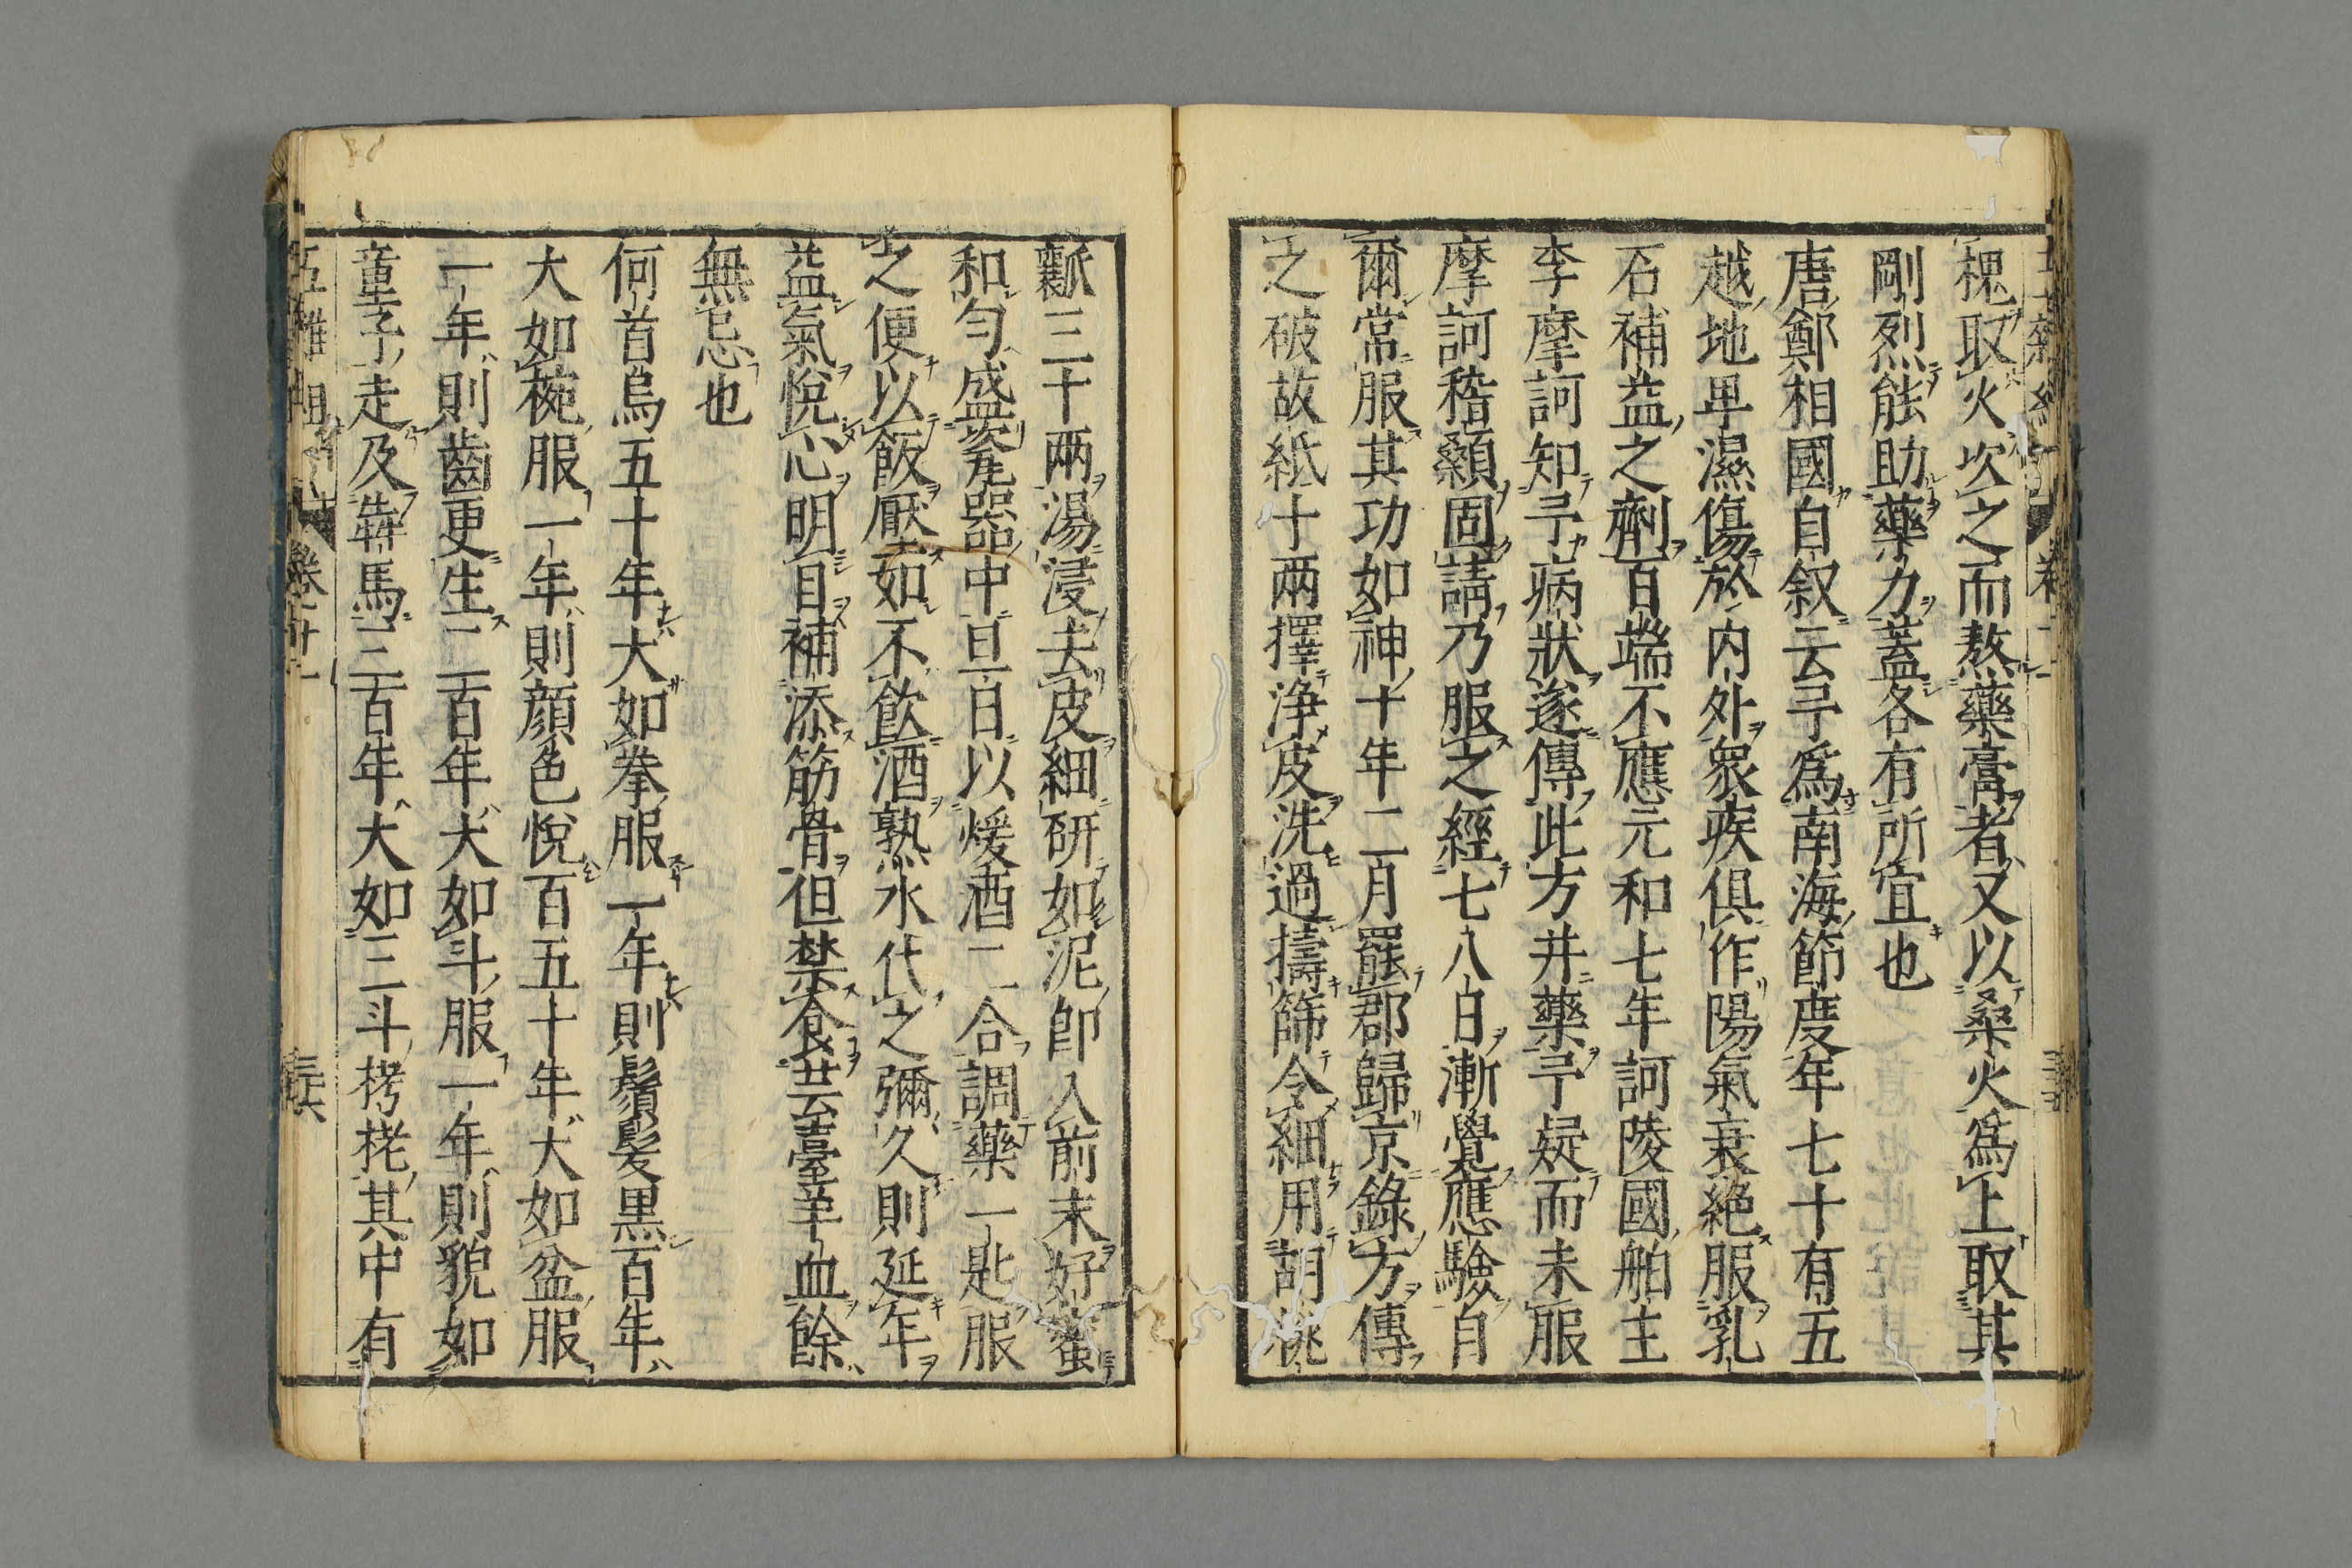 稷取火炊之而熬藥膏者又以桑火爲上取其
剛烈能助藥力蓋各有所宜也
唐鄭相國自叙云予爲南海節度年七十有五
越地卑濕傷於内外衆疾俱作陽氣衰絶服乳
石補益之劑百端不應元和七年訶陵國舶主
李摩訶知予病狀遂傳此方并藥予疑而未服
摩訶稽顙固請乃服之經七八日漸覺應驗自
爾常服其功如神十年二月罷郡歸京錄方傳
之破故紙十兩擇淨皮洗過擣篩令細用胡桃
瓤二十兩湯浸去皮細研如泥卽入前末好蜜
和勻盛瓷器中旦日以煖酒二合調藥一匙服
之便以飯壓如不飲酒熟水代之彌久則延年
益氣悅心明目補添筋骨但禁食芸臺羊血餘
無忌也
何首烏五十年大如拳服一年則鬚髮黒百年
大如椀服一年則顔色悅百五十年大如盆服
一年則齒更生二百年大如斗服一年則貌如
童子走及犇馬三百年大如三斗栲栳其中有
五雜俎 卷十一 三六